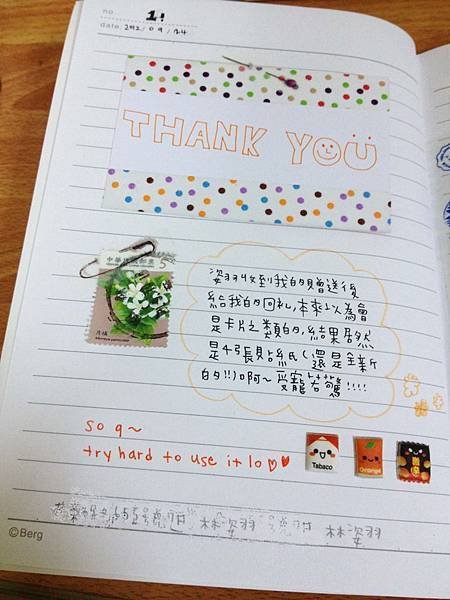 no. 1!
date. 2012 / 09 / 24
THANK YOU
中華民國郵票
5
姿羽收到我的贈送後
給我的回禮,本來以為會
是卡片之類的,結果居然
是4張貼紙(還是全新
的!!)啊~受寵若驚!!!!
so q~
try hard to use it lo
Tabaco
Orange
林姿羽 林姿羽
©Berg